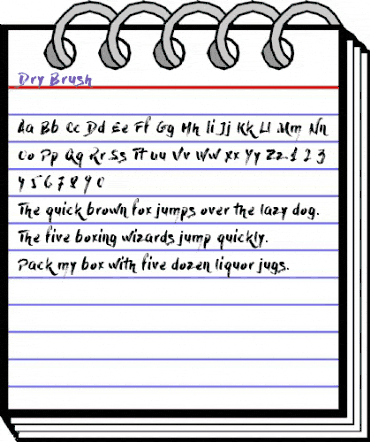 Dry Brush
Aa Bb Cc Dd Ee Ff Gg Hh Ii Jj Kk Ll Mm Nn
Oo Pp Qq Rr Ss Tt uu Vv Ww xx Yy Zz 1 2 3
4 5 6 7 8 9 0
The quick brown fox jumps over the lazy dog.
The five boxing wizards jump quickly.
Pack my box with five dozen liquor jugs.